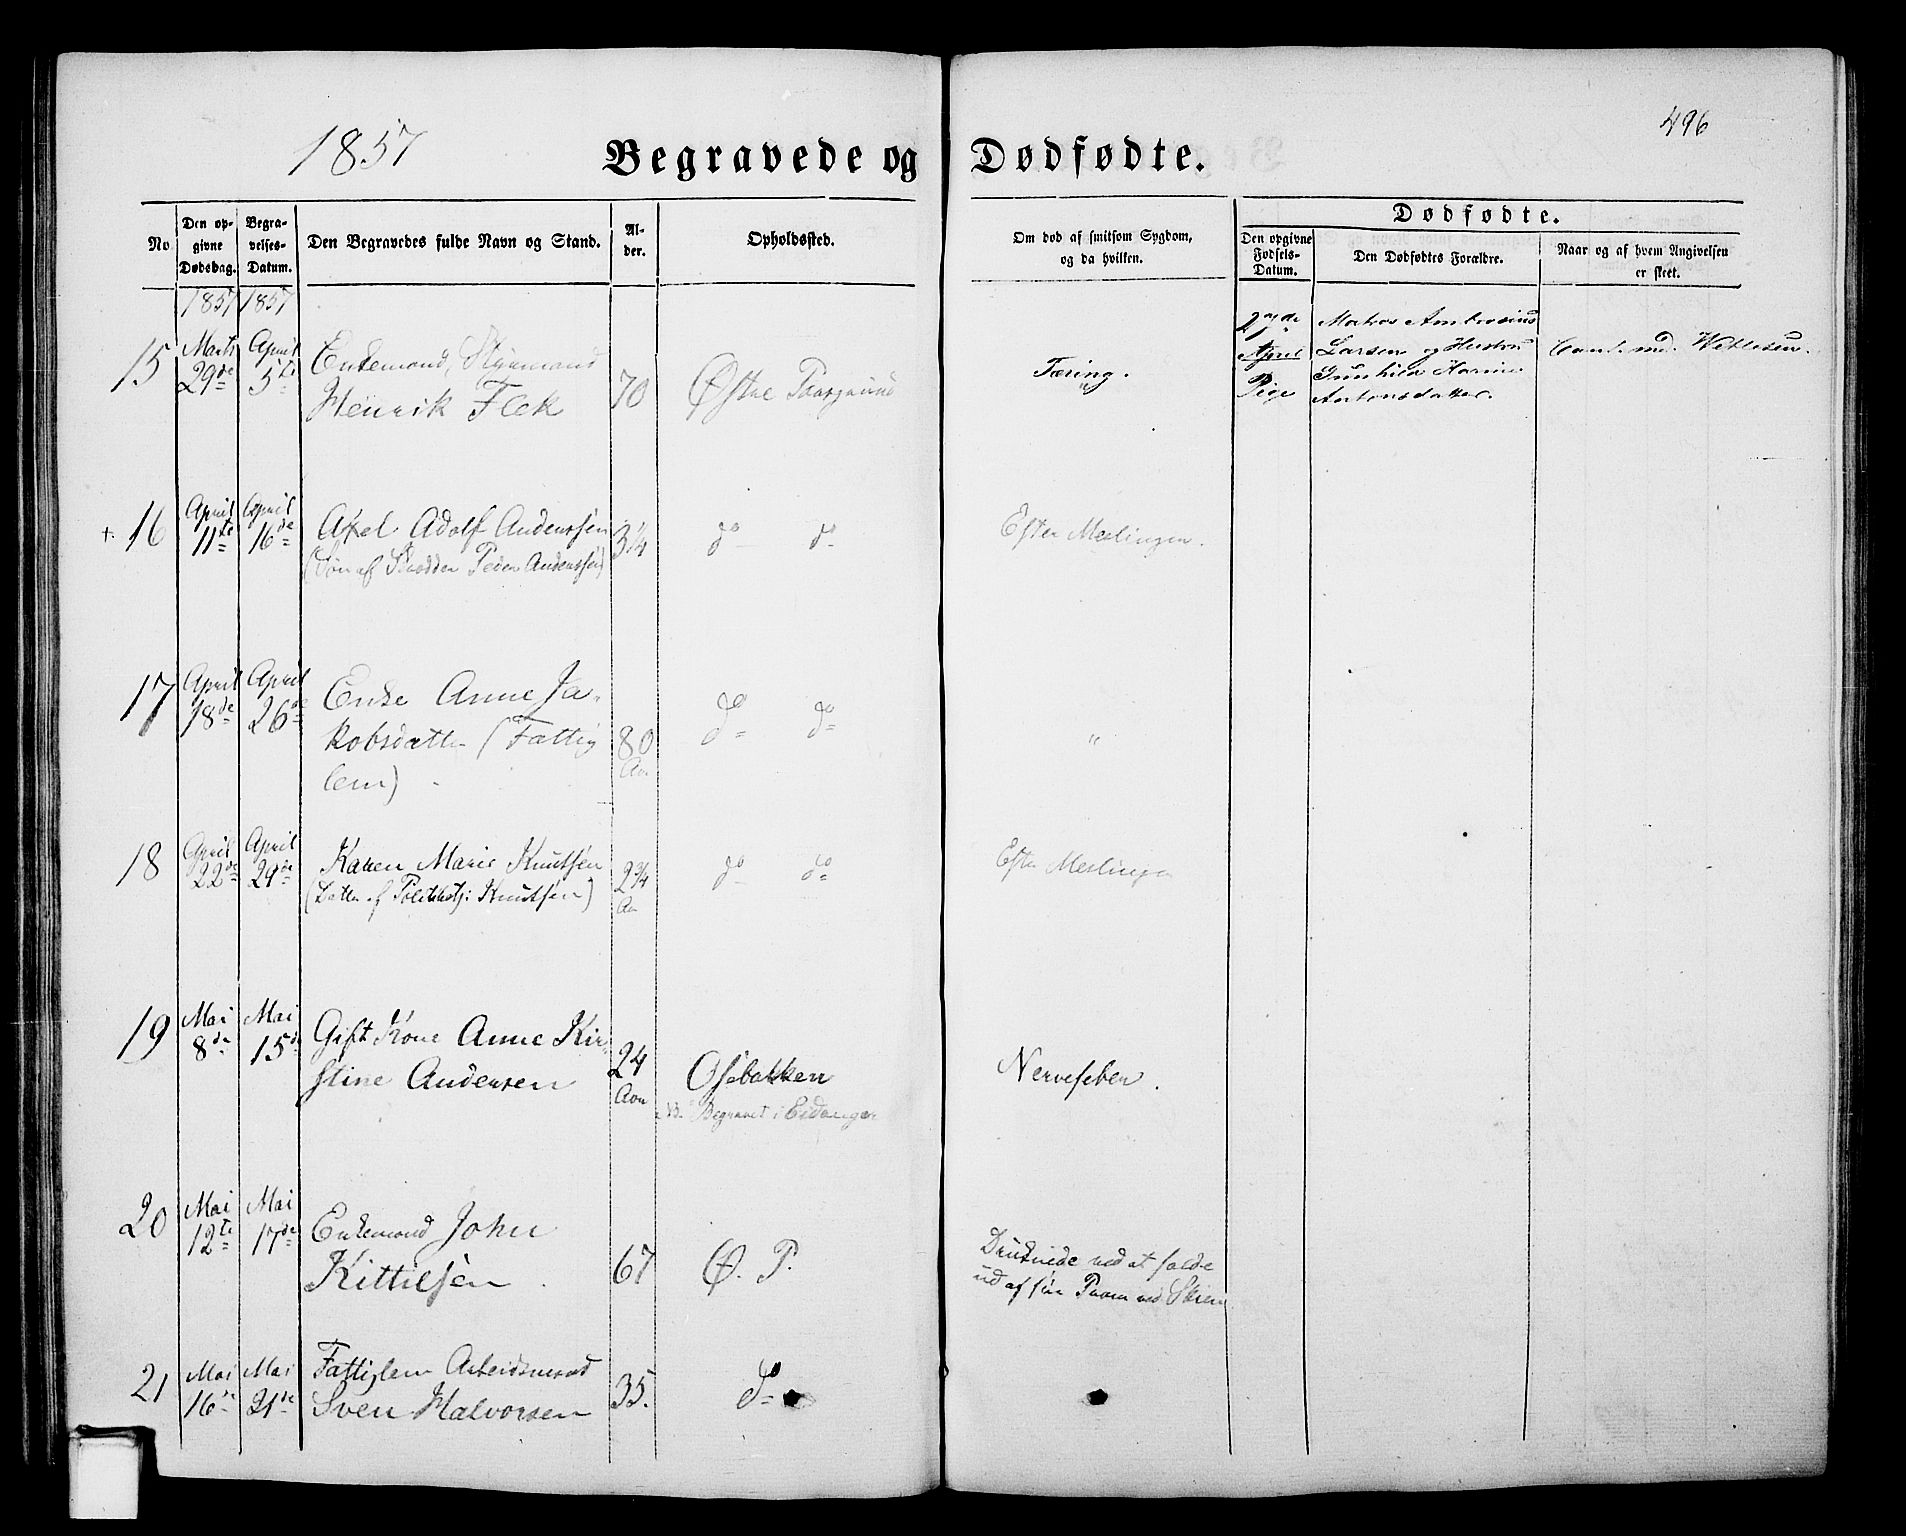 1857
496
Begravede og Dødfødte.
No
Den opgivne Dødsdag.
Begravelses-Datum.
Den Begravedes fulde Navn og Stand.
Alder.
Opholdssted.
Om død af smitsom Sygdom, og da hvilken.
Dødfødte.
Den opgivne Fødsels-Datum.
Den Dødfødtes Forældre.
Naar og af hvem Angivelsen er skeet.
1857 1857
15 Marts 29de April 5te Enkemand, Styrmand
Henrik Flek 70 Østre Porsgrund Tæring.
27de April Pige
Matros Ambrosius
Larsen og Hustru
Gunhild Karine
Antonsdatter.
Cand. med. Wetlesen.
+ 16 April 11te April 16de Axel Adolf Anderssen 3 1/4 do do Efter Meslinger.
(Søn af Skrædder Peder Anderssen)
17 April 18de April 26de Enke Anne Ja-
kobsdatter (Fattig 80 Aar do do "
lem)
18 April 22de April 29de Karen Marie Knutsen 2 3/4 Aar do do Efter Meslinger
(Datter af Politibetj: Knutsen)
19 Mai 8de Mai 15de Gift Kone Anne Kir-
stine Andersen 24 Aar Osebakken Nervefeber.
NB. Begravet i Eidanger
20 Mai 12te Mai 17de Enkemand John
Kittilsen 67 Ø. P. Druknede ved at falde
ud af sin Pram ved Skien
21 Mai 16de Mai 21de Fattiglem Arbeidsmand
Sven Halvorsen 35. do